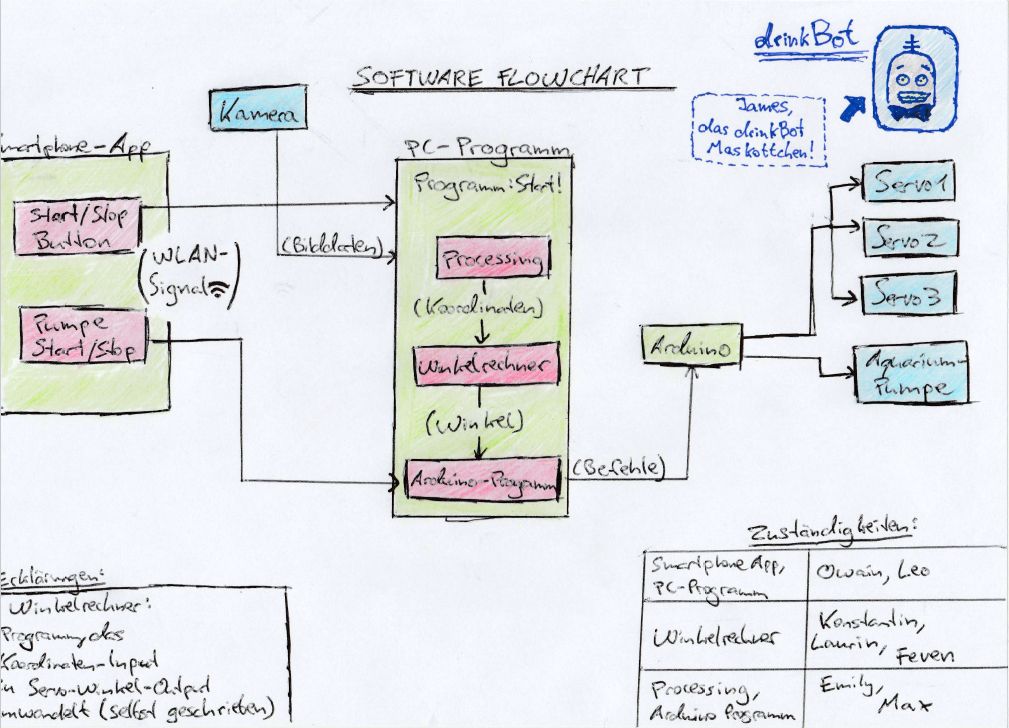 drinkBot
SOFTWARE FLOWCHART
James,
das drinkBot
Maskottchen!
Kamera
martphone-App
Start/Stop
Button
(WLAN-
Signal)
Pumpe
Start/Stop
PC-Programm
Programm:Start!
(Bilddaten)
Processing
(Koordinaten)
Winkelrechner
(Winkel)
Arduino-Programm
(Befehle)
Arduino
Servo1
Servo2
Servo3
Aquarium-
Pumpe
Erklärungen:
Winkelrechner:
Programm, das
Koordinaten-Input
in Servo-Winkel-Output
mwandelt (selbst geschrieben)
Zuständigkeiten:
Smartphone App,
PC-Programm
Owain, Leo
Winkelrechner
Konstantin,
Laurin,
Feven
Processing,
Arduino Programm
Emily,
Max